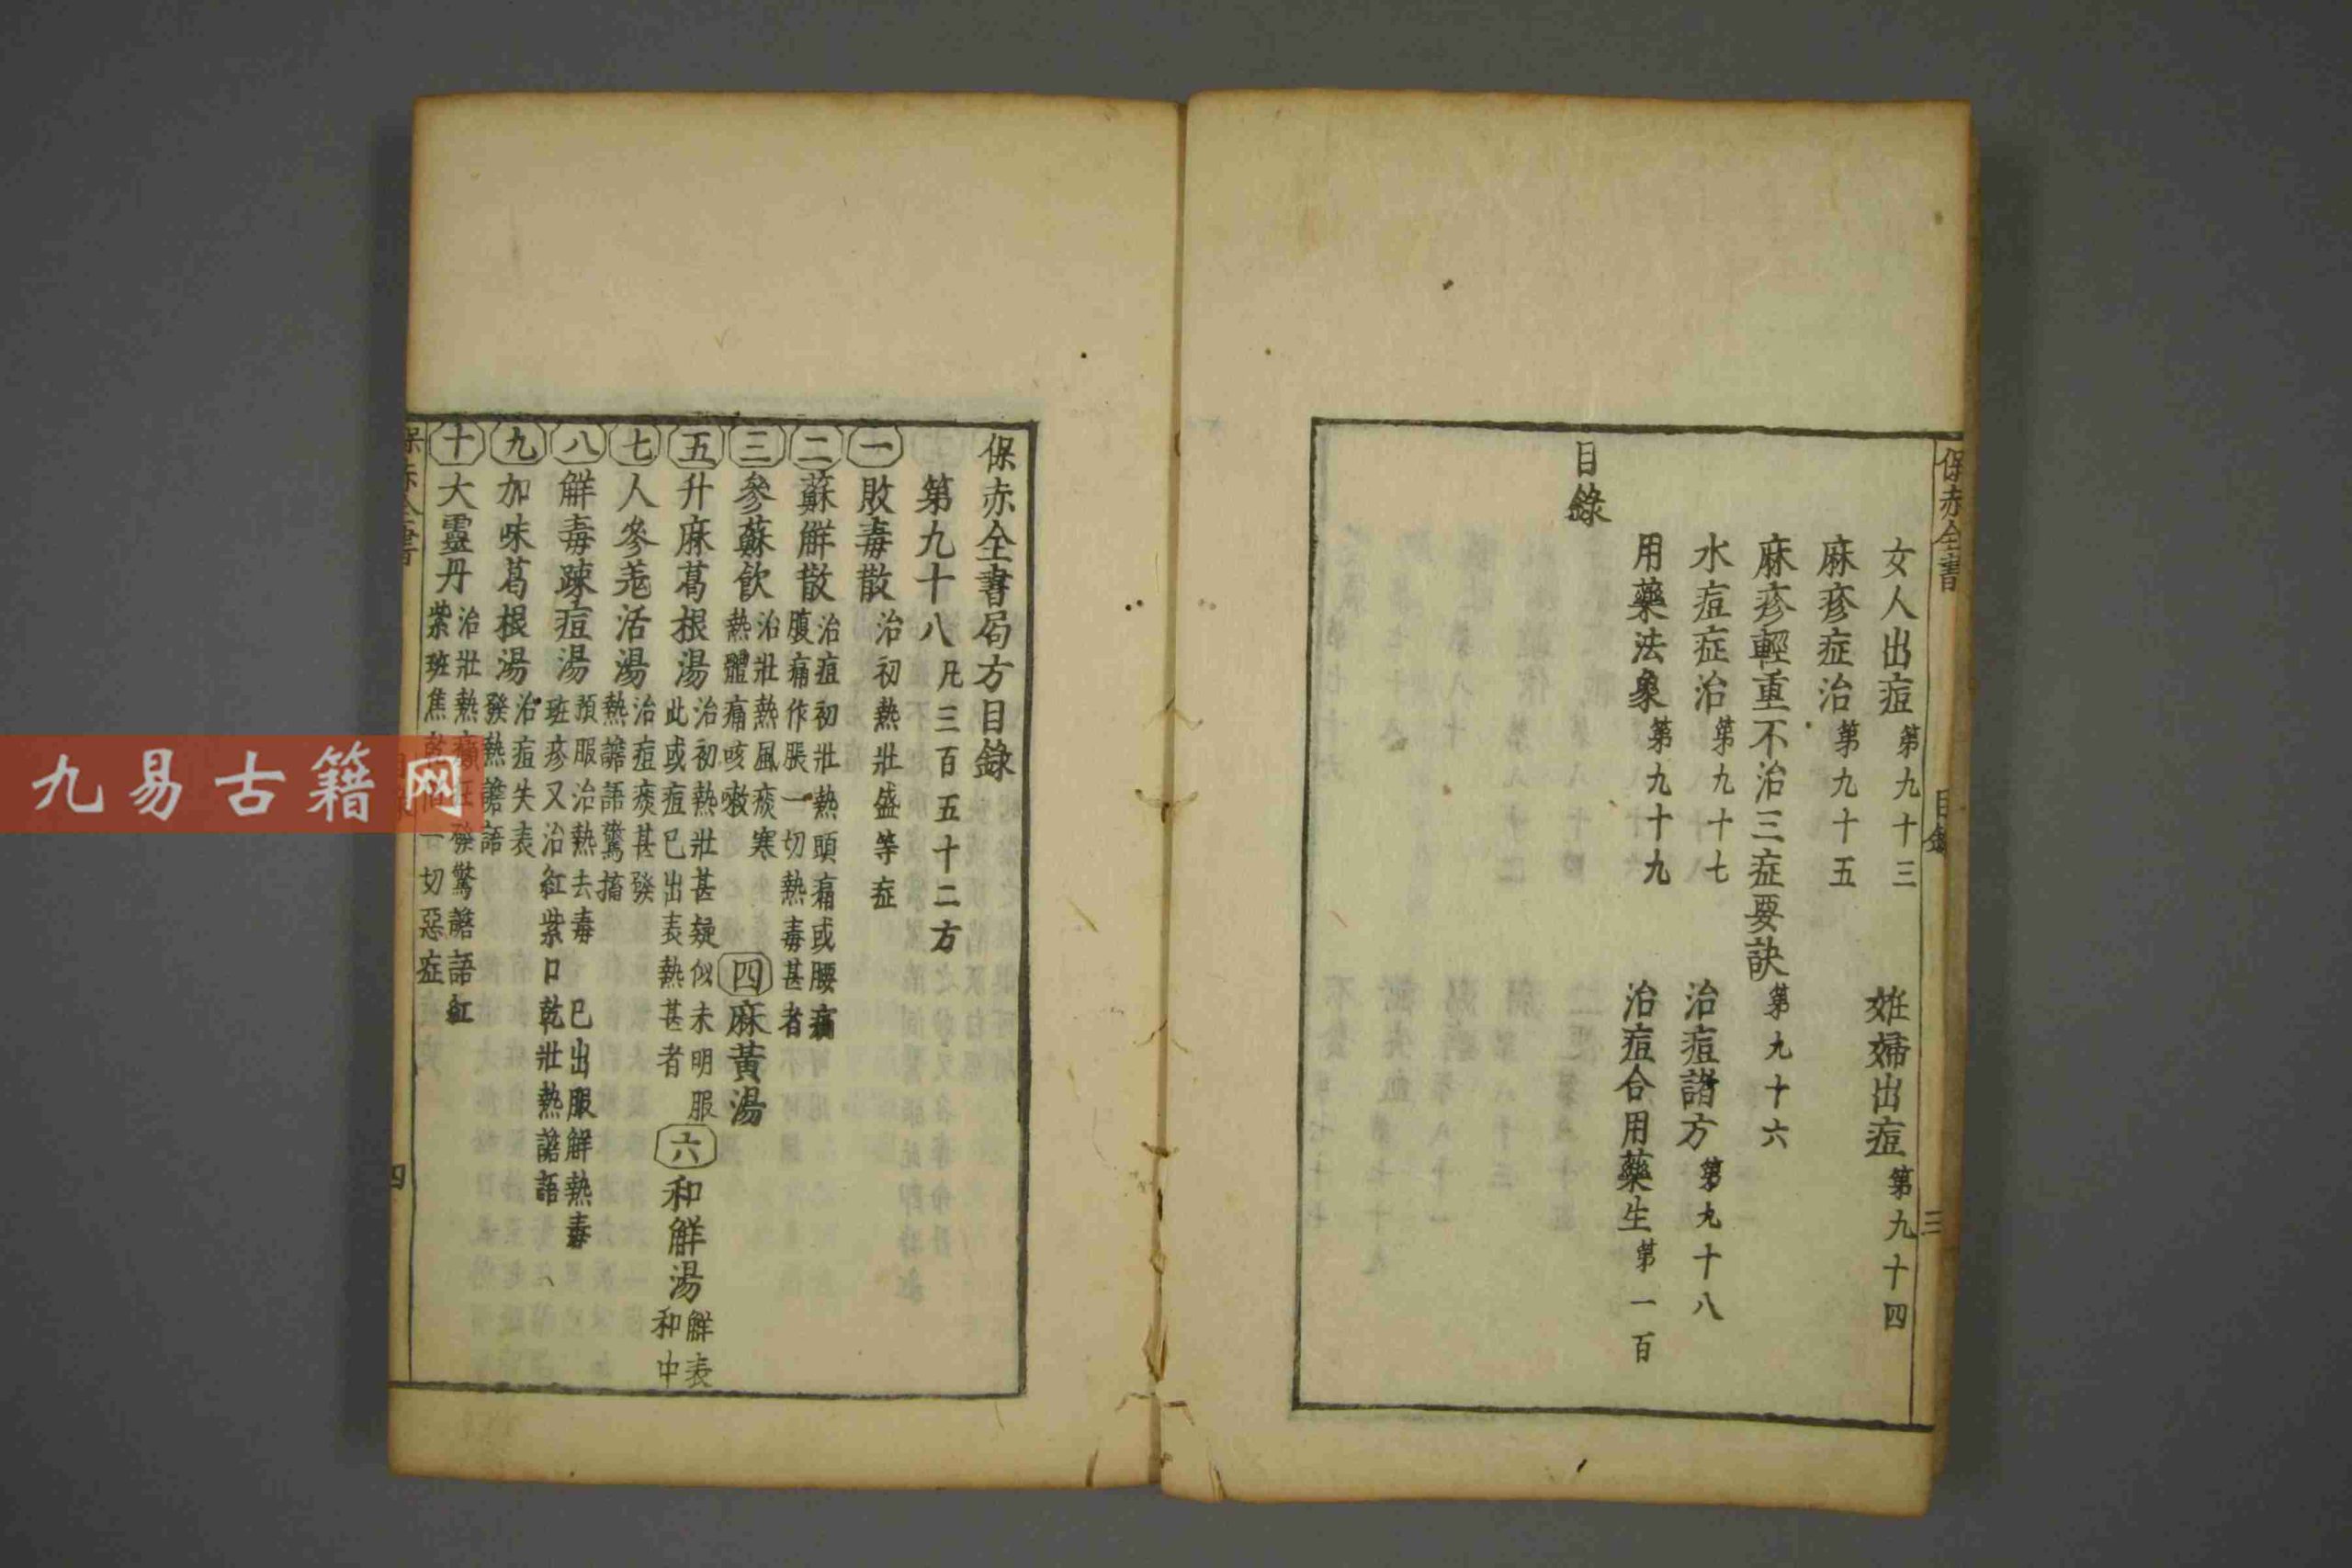 保赤全書 目錄 三
女人出痘第九十三 姙婦出痘第九十四
麻疹症治第九十五
麻疹輕重不治三症要訣第九十六
水痘症治第九十七 治痘諸方第九十八
用藥法象第九十九 治痘合用藥生第一百
目錄
保赤全書局方目錄
第九十八凡三百五十二方
一 敗毒散治初熱壯盛等症
二 蘇解散治痘初壯熱頭痛或腰痛腹痛作脹一切熱毒甚者
三 參蘇飲治壯熱風痰寒熱體痛咳嗽 四 麻黃湯
五 升麻葛根湯治初熱壯甚疑似未明服此或痘已出表熱甚者 六 和解湯解表和中
七 人參羗活湯治痘痰甚發熱譫語驚搐
八 解毒踈痘湯預服治熱去毒 已出服解熱毒班疹又治紅紫口乾壯熱譫語
九 加味葛根湯治痘失表發熱譫語
十 大靈丹治壯熱癲狂發驚譫語紅紫班焦一切惡症
保赤全書 四
九易古籍网